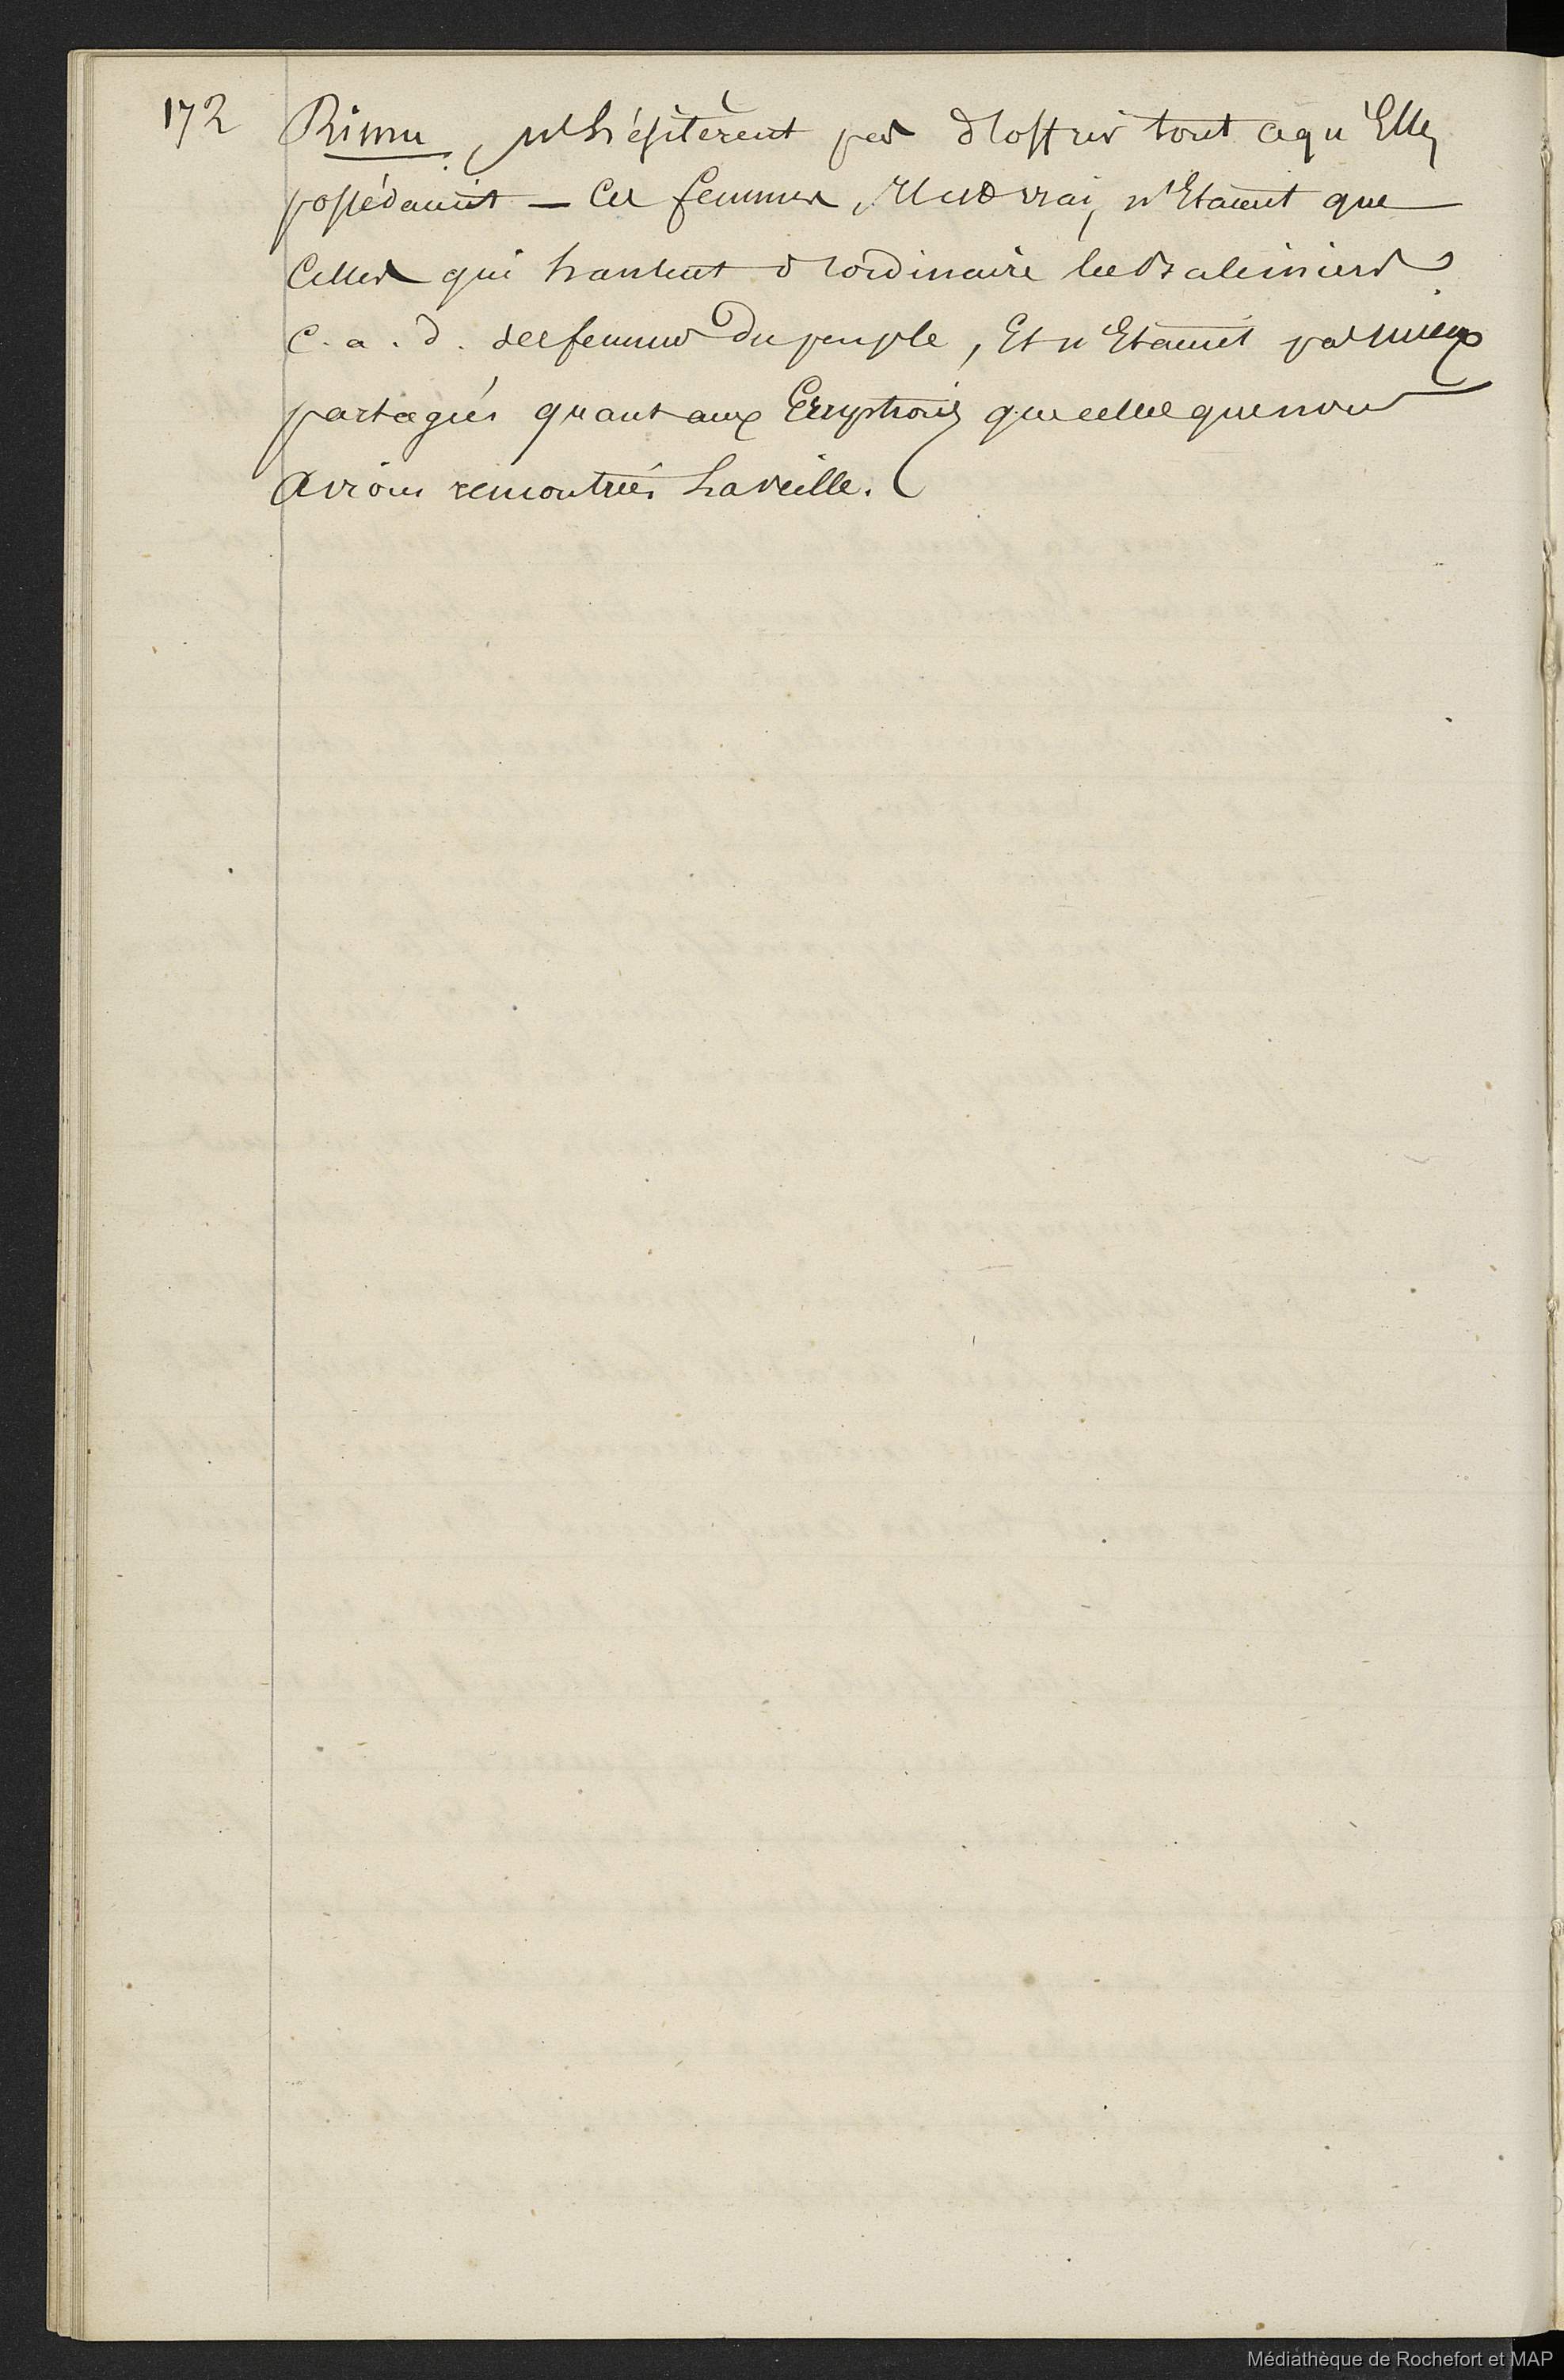 172
Rimu, n'hésitèrent pas d'offrir tout ce qu'Elles
possédaient — Ces femmes, Il est vrai, n'Etaient que
Celles qui hantent d'ordinaire les Baleiniers
c. a. d. des femmes du peuple, Et n'Etaient pas mieux
partagées quant aux Eruptions que celles que nous
avions rencontrées la veille.
Médiathèque de Rochefort et MAP